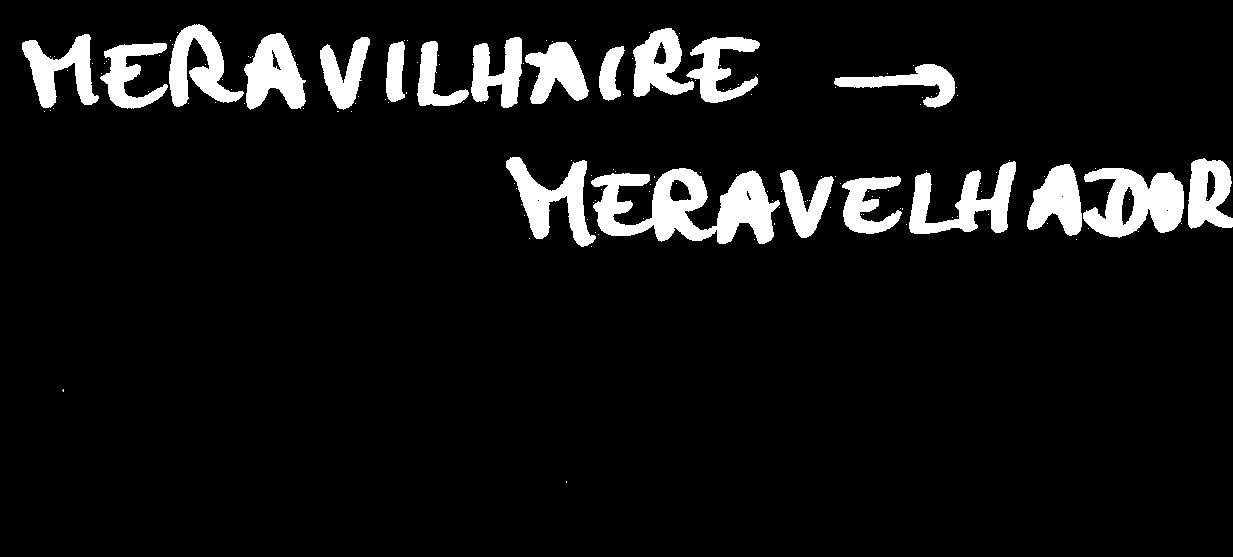 MERAVILHAIRE →
MERAVELHADOR